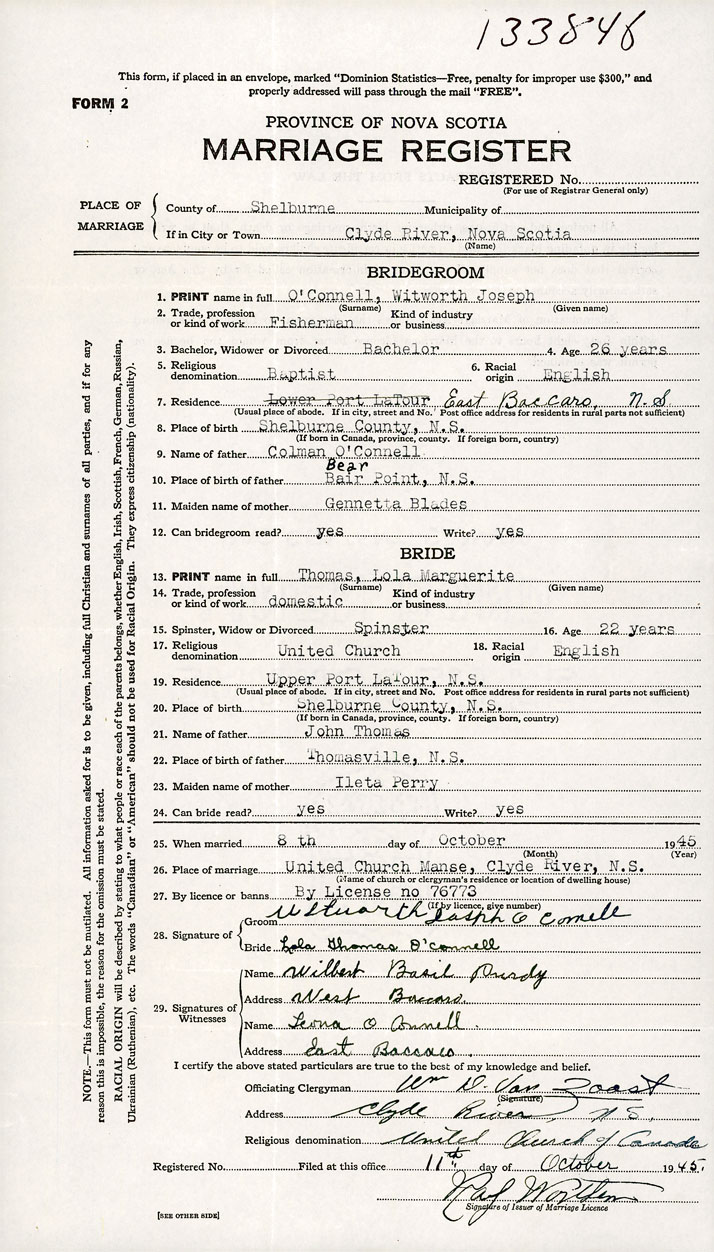 133846
This form, if placed in an envelope, marked "Dominion Statistics—Free, penalty for improper use $300," and
properly addressed will pass through the mail "FREE".
FORM 2
PROVINCE OF NOVA SCOTIA
MARRIAGE REGISTER
REGISTERED No.
(For use of Registrar General only)
PLACE OF MARRIAGE
County of Shelburne Municipality of
If in City or Town Clyde River, Nova Scotia
(Name)
BRIDEGROOM
1. PRINT name in full O'Connell, Witworth Joseph
(Surname) (Given name)
2. Trade, profession or kind of work Fisherman Kind of industry or business
3. Bachelor, Widower or Divorced Bachelor 4. Age 26 years
5. Religious denomination Baptist 6. Racial origin English
7. Residence Lower Port LaTour East Baccaro, N.S
(Usual place of abode. If in city, street and No. Post office address for residents in rural parts not sufficient)
8. Place of birth Shelburne County, N.S.
(If born in Canada, province, county. If foreign born, country)
9. Name of father Colman O'Connell
Bear
10. Place of birth of father Bair Point, N.S.
11. Maiden name of mother Gennetta Blades
12. Can bridegroom read? yes Write? yes
BRIDE
13. PRINT name in full Thomas, Lola Marguerite
(Surname) (Given name)
14. Trade, profession or kind of work domestic Kind of industry or business
15. Spinster, Widow or Divorced Spinster 16. Age 22 years
17. Religious denomination United Church 18. Racial origin English
19. Residence Upper Port LaTour, N.S.
(Usual place of abode. If in city, street and No. Post office address for residents in rural parts not sufficient)
20. Place of birth Shelburne County, N.S.
(If born in Canada, province, county. If foreign born, country)
21. Name of father John Thomas
22. Place of birth of father Thomasville, N.S.
23. Maiden name of mother Ileta Perry
24. Can bride read? yes Write? yes
25. When married 8 th day of October 1945
(Month) (Year)
26. Place of marriage United Church Manse, Clyde River, N.S.
(Name of church or clergyman's residence or location of dwelling house)
27. By licence or banns By License no 76773
(If by licence, give number)
28. Signature of
Groom Joseph O Connell
Bride Lola Thomas O'Connell
29. Signatures of Witnesses
Name Wilbert Basil Purdy
Address West Baccaro.
Name Leona O Connell.
Address East Baccaro.
I certify the above stated particulars are true to the best of my knowledge and belief.
Officiating Clergyman Wm D. Van Zoost
(Signature)
Address Clyde River, N.S.
Religious denomination United Church of Canada
Registered No. Filed at this office 11th day of October 1945.
Signature of Issuer of Marriage Licence
[SEE OTHER SIDE]
NOTE.—This form must not be mutilated. All information asked for is to be given, including full Christian and surnames of all parties, and if for any
reason this is impossible, the reason for the omission must be stated.
RACIAL ORIGIN will be described by stating to what people or race each of the parents belongs, whether English, Irish, Scottish, French, German, Russian,
Ukrainian (Ruthenian), etc. The words "Canadian" or "American" should not be used for Racial Origin. They express citizenship (nationality).